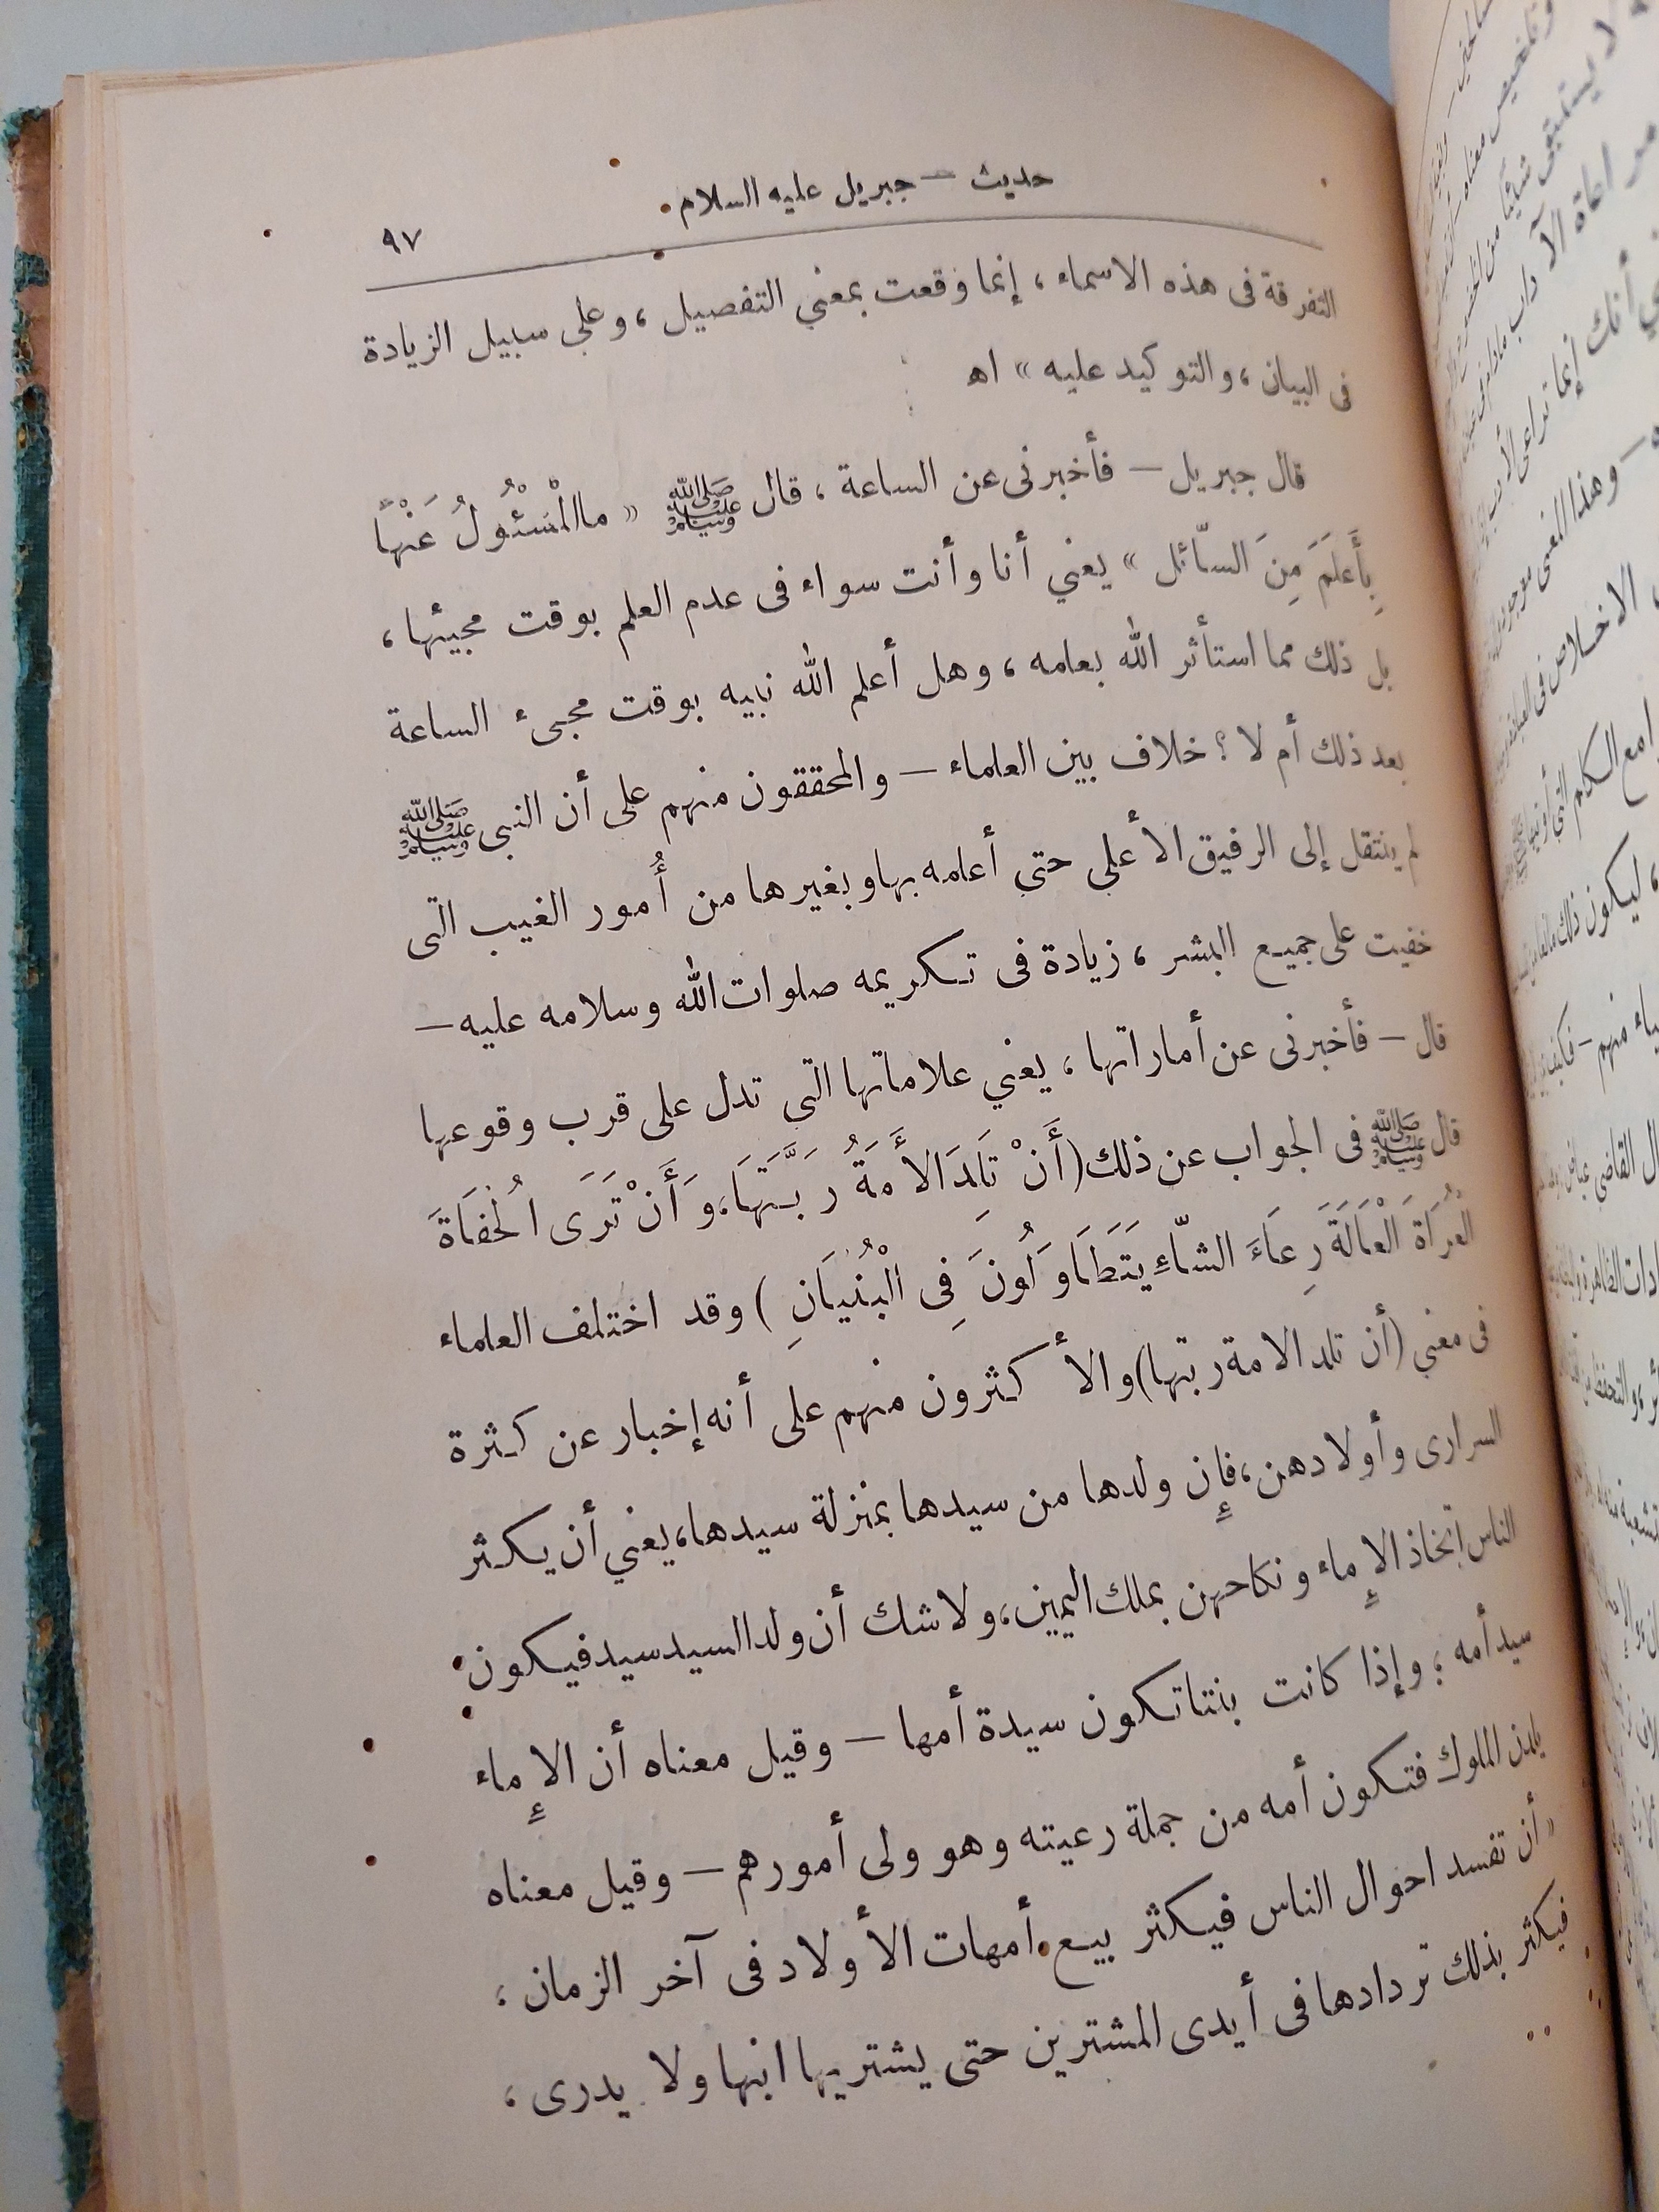 حديث — جبريل عليه السلام
٩٧
التفرقة فى هذه الاسماء ، إنما وقعت بمعني التفصيل ، وعلى سبيل الزيادة
فى البيان ، والتوكيد عليه » اهـ
قال جبريل — فأخبرنى عن الساعة ، قال ﷺ « ماالْمَسْئُولُ عَنْهَا
بِأَعلَمَ مِنَ السّائل » يعني أنا وأنت سواء فى عدم العلم بوقت مجيئها ،
بل ذلك مما استأثر الله بعامه ، وهل أعلم الله نبيه بوقت مجىء الساعة
بعد ذلك أم لا ؟ خلاف بين العلماء — والمحققون منهم على أن النبى ﷺ
لم ينتقل إلى الرفيق الأعلى حتي أعلمه بها وبغيرها من أُمور الغيب التى
خفيت على جميع البشر ، زيادة فى تكريمه صلوات الله وسلامه عليه —
قال — فأخبرنى عن أماراتها ، يعني علاماتها التي تدل على قرب وقوعها
قال ﷺ فى الجواب عن ذلك ( أَنْ تَلِدَ الأَمَةُ رَبَّتَهَا ، وَأَنْ تَرَى الْحُفَاةَ
الْعُرَاةَ الْعَالَةَ رِعَاءَ الشّاءِ يَتَطَاوَلُونَ فِى الْبُنْيَانِ ) وقد اختلف العلماء
فى معني ( أن تلد الامة ربتها ) والأكثرون منهم على أنه إخبار عن كثرة
السرارى وأولادهن ، فإِن ولدها من سيدها بمنزلة سيدها ، يعني أن يكثر
الناس اتخاذ الإِماء ونكاحهن بملك اليمين ، ولاشك أن ولد السيد سيد فيكون
سيد أمه ؛ وإذا كانت بنتا تكون سيدة أمها — وقيل معناه أن الإِماء
يلدن الملوك فتكون أمه من جملة رعيته وهو ولى أمورهم — وقيل معناه
« أن تفسد احوال الناس فيكثر بيع أمهات الأولاد فى آخر الزمان ،
فيكثر بذلك تردادها فى أيدى المشترين حتى يشتريها ابنها ولا يدرى ،